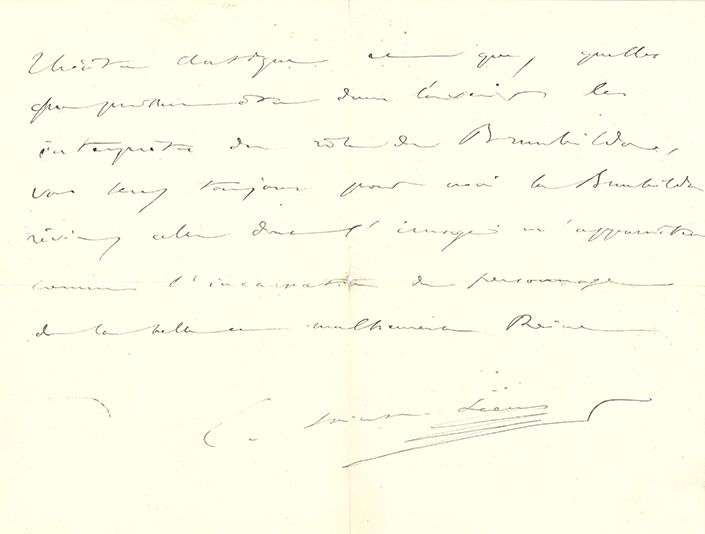 Théâtre classique et que, quelles
que puissent être dans l'avenir les
interprètes du rôle de Brunhilda,
vous serez toujours pour moi la Brunhilda
rêvée, celle dont l'image m'apparaîtra
comme l'incarnation du personnage
de la belle et malheureuse Reine
C. Saint-Saëns